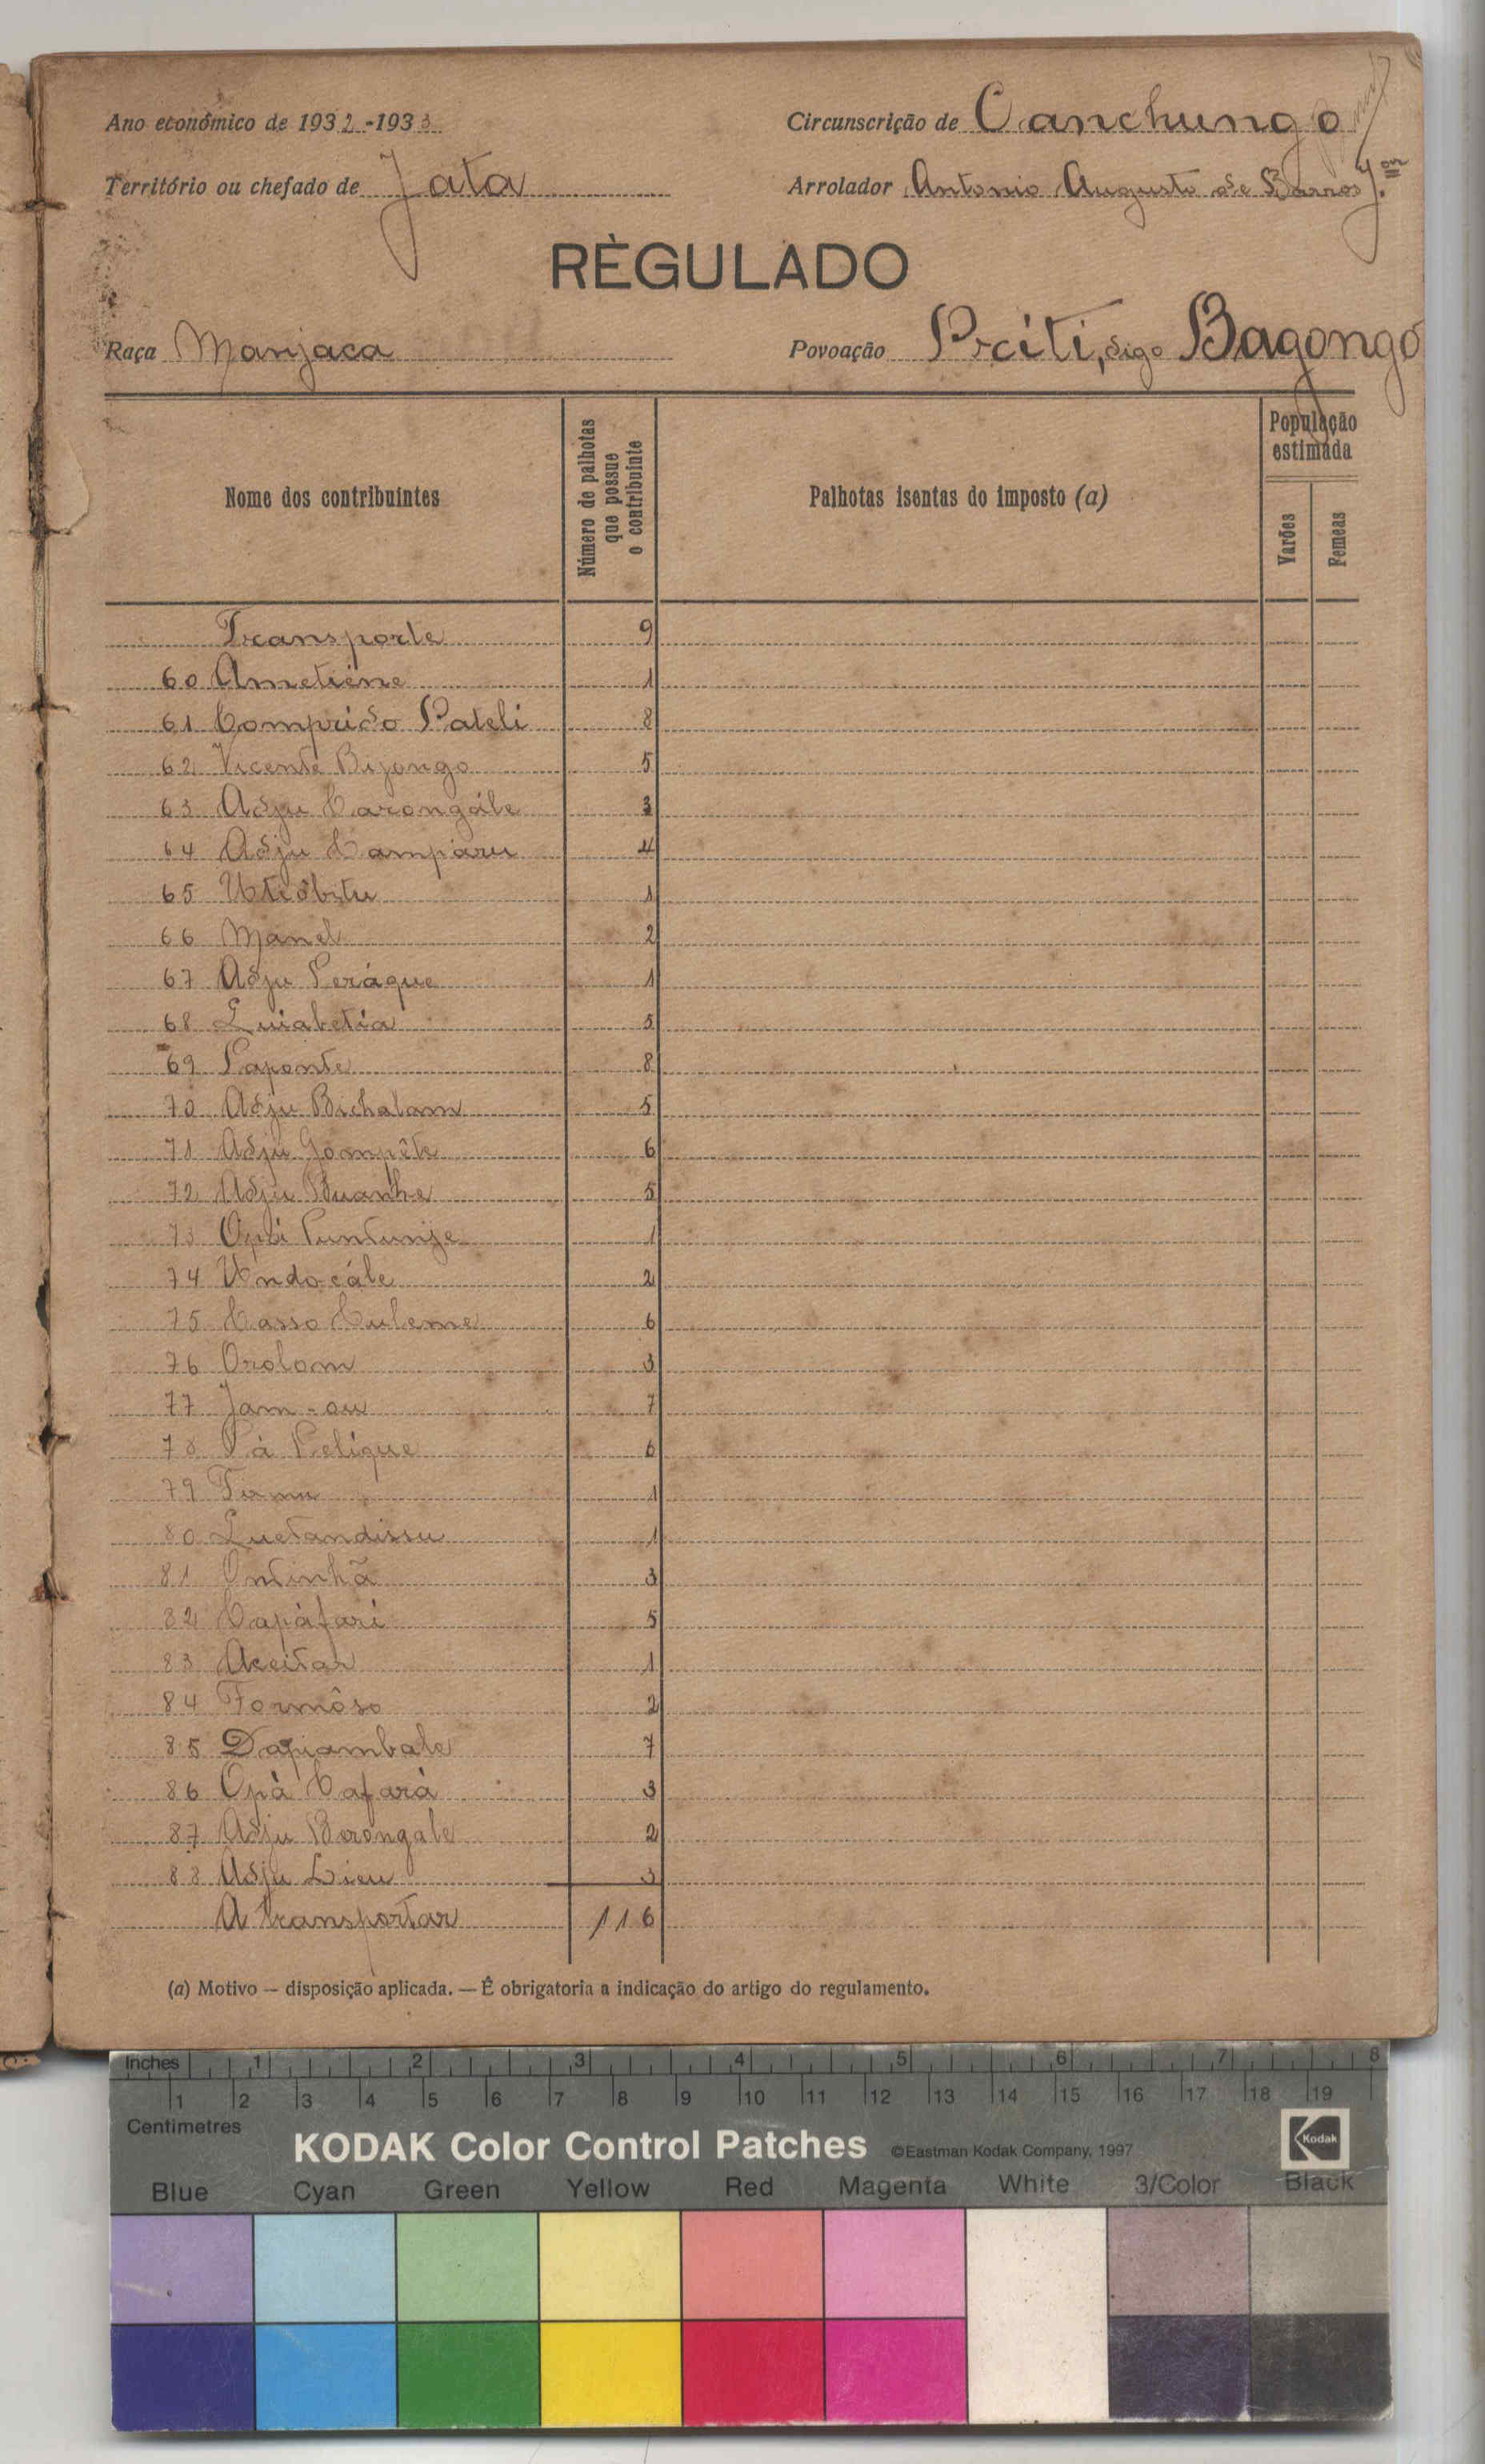 Ano económico de 1932-1933
Circunscrição de Canchungo
Território ou chefado de Jata
Arrolador Antonio Augusto de Barros J.or
RÈGULADO
Raça Manjaca
Povoação Prciti, digo Bagongo
Nome dos contribuintes
Número de palhotas que possue o contribuinte
Palhotas isentas do imposto (a)
População estimada
Varões
Femeas
Transporte 9
60 Ametiène 1
61 Comprido Pateli 8
62 Vicente Bijongo 5
63 Adju Carongále 3
64 Adju Campáru 4
65 Utidbitu 1
66 Manel 2
67 Adju Peráque 1
68 Luiabetia 5
69 Paponte 8
70 Adju Bichalam 5
71 Adju Gompête 6
72 Adju Buanhe 5
73 Opli Puntunje 1
74 Undocále 2
75 Casso Culeme 6
76 Orolom 3
77 Jam-ou 7
78 Pà Pelique 6
79 Tumu 1
80 Luetandissu 1
81 Ontinhã 3
82 Capáfari 5
83 Aceitar 1
84 Formôso 2
85 Dapiambale 7
86 Opà Cafará 3
87 Adju Borongale 2
88 Adju Lieu 3
A transportar 116
(a) Motivo — disposição aplicada. — É obrigatoria a indicação do artigo do regulamento.
Inches 1 2 3 4 5 6 7 8
1 2 3 4 5 6 7 8 9 10 11 12 13 14 15 16 17 18 19
Centimetres
KODAK Color Control Patches ©Eastman Kodak Company, 1997 Kodak
Blue Cyan Green Yellow Red Magenta White 3/Color Black